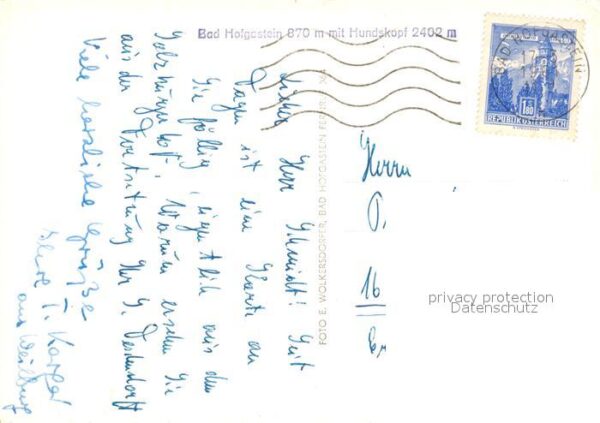 Bad Hofgastein 870 m mit Hundskopf 2402 m
Lieber Herr Schmidt! Seit
Tagen ist eine Karte an
Sie fällig, eigentlich aus dem
Salzburger Hof. Warum ersehen Sie
aus der Vertretung Ihr
Viele herzliche Grüße
Ihre
aus Weilburg
FOTO E. WOLKERSDORFER, BAD HOFGASTEIN
Herrn
16
privacy protection
Datenschutz
BAD HOFGASTEIN
1.80
REPUBLIK ÖSTERREICH